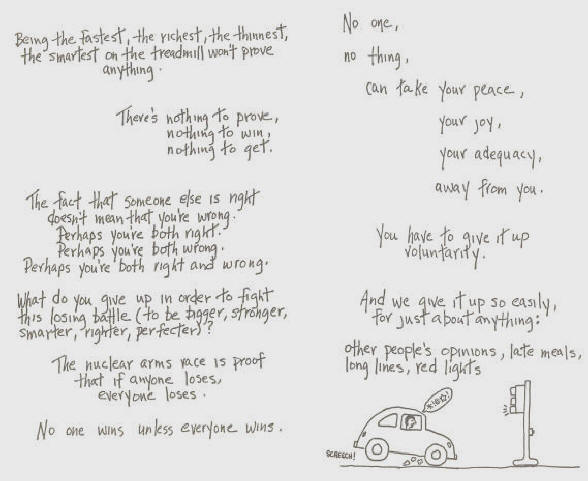 Being the fastest, the richest, the thinnest,
the smartest on the treadmill won't prove
anything.
There's nothing to prove,
nothing to win,
nothing to get.
The fact that someone else is right
doesn't mean that you're wrong.
Perhaps you're both right.
Perhaps you're both wrong.
Perhaps you're both right and wrong.
What do you give up in order to fight
this losing battle (to be bigger, stronger,
smarter, righter, perfecter)?
The nuclear arms race is proof
that if anyone loses,
everyone loses.
No one wins unless everyone wins.
No one,
no thing,
can take your peace,
your joy,
your adequacy,
away from you.
You have to give it up
voluntarily.
And we give it up so easily,
for just about anything:
other people's opinions, late meals,
long lines, red lights
SCREECH!